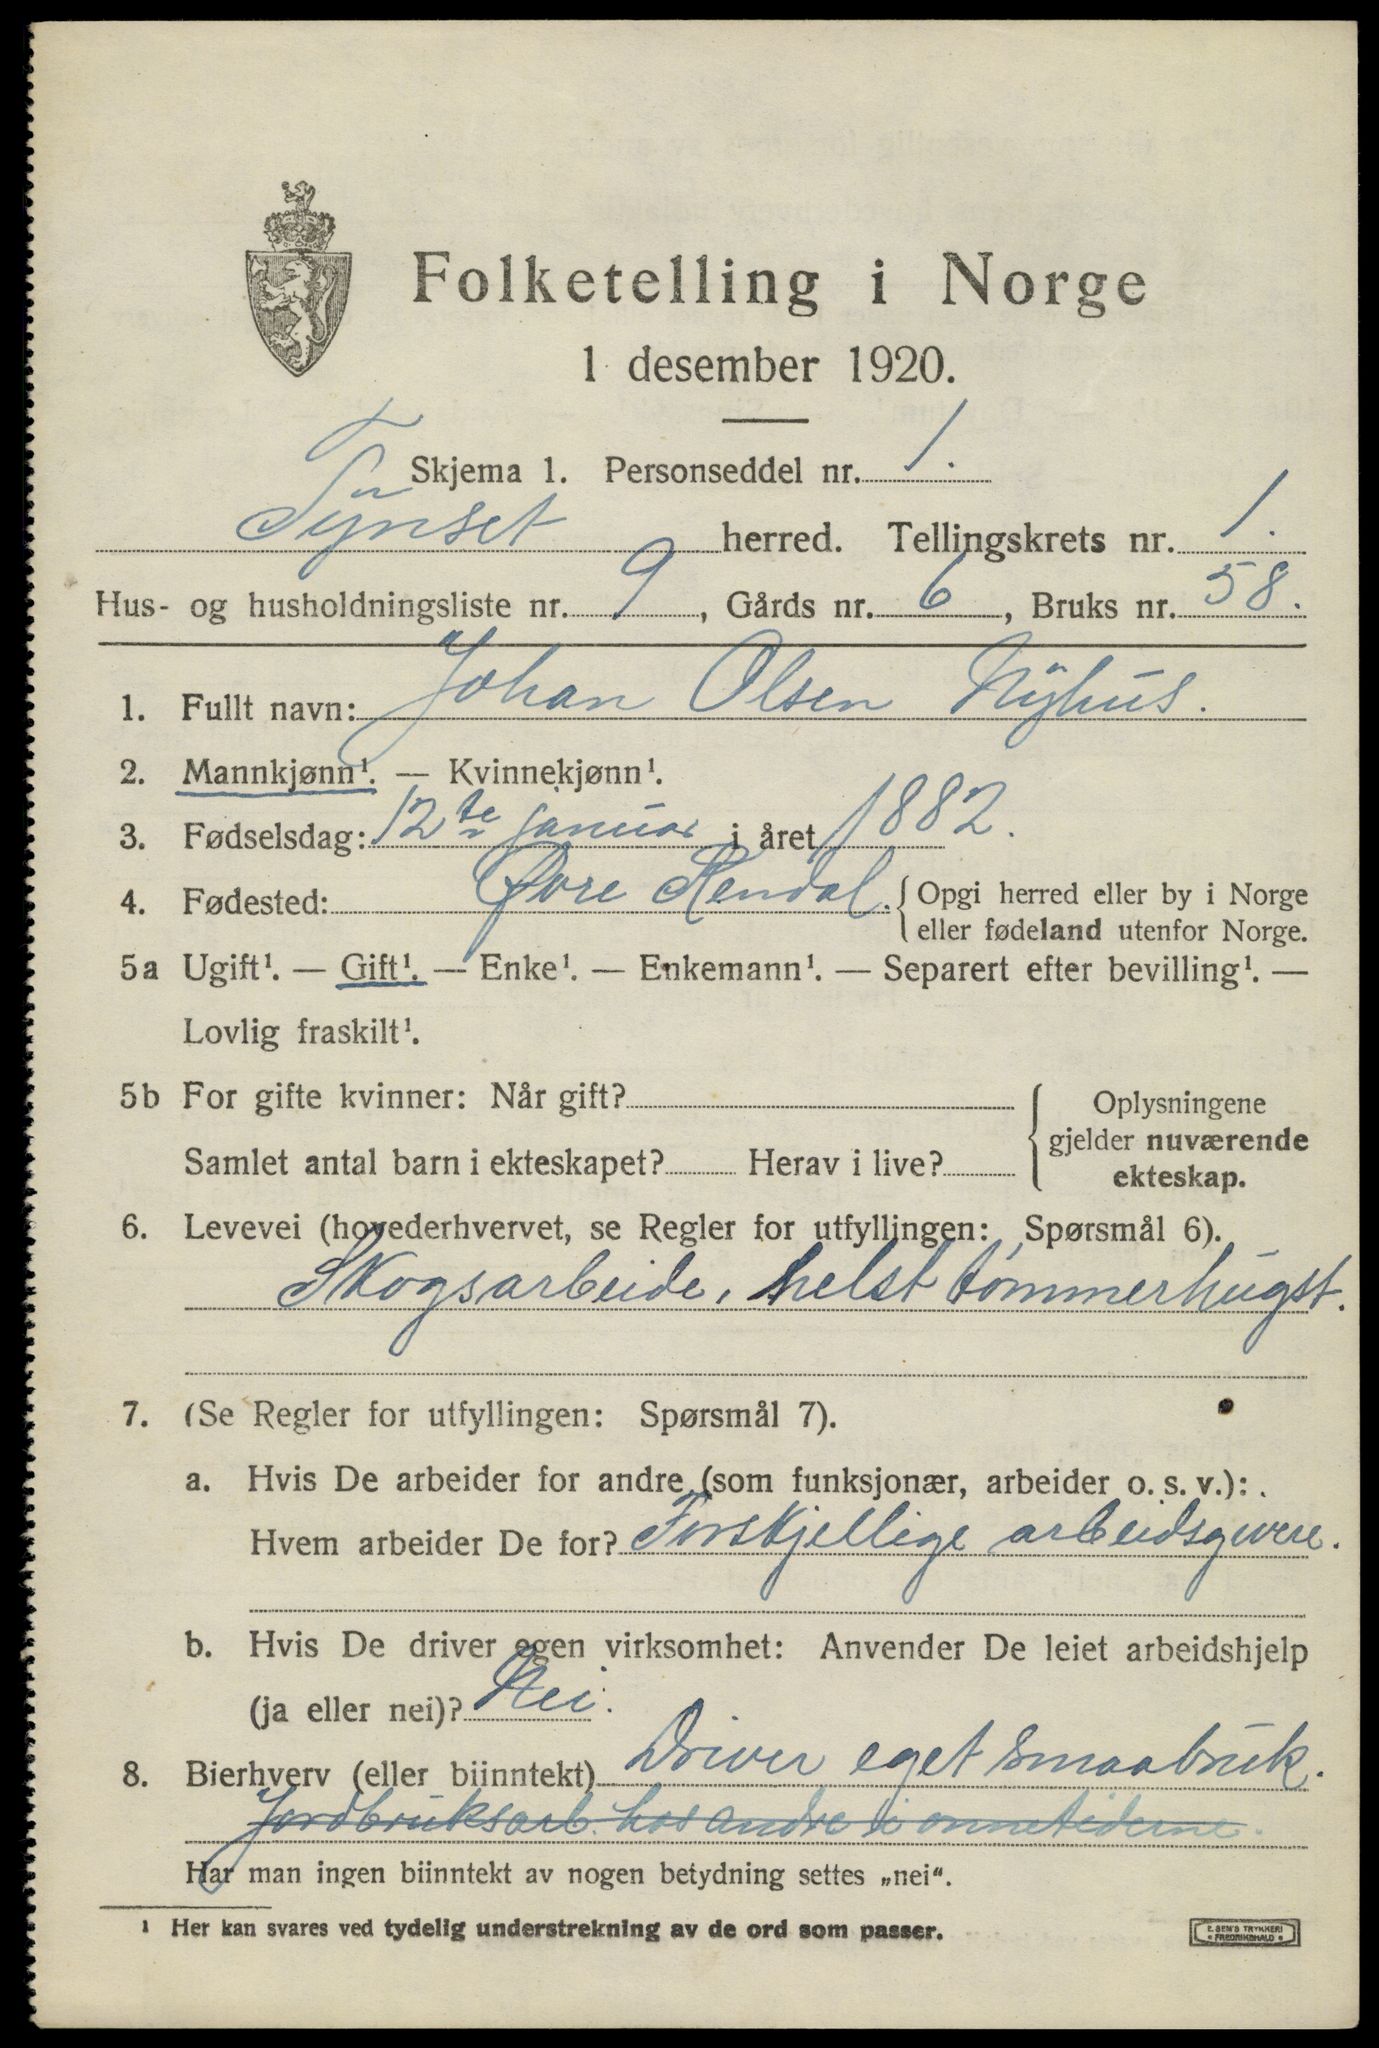 Folketelling i Norge
1 desember 1920.
Skjema 1. Personseddel nr. 1.
Tynset herred. Tellingskrets nr. 1.
Hus- og husholdningsliste nr. 9, Gårds nr. 6, Bruks nr. 58.
1. Fullt navn: Johan Olsen Nyhus.
2. Mannkjønn¹. — Kvinnekjønn¹.
3. Fødselsdag: 12te januar i året 1882.
4. Fødested: Øvre Rendal. { Opgi herred eller by i Norge
eller fødeland utenfor Norge.
5a Ugift¹. — Gift¹. — Enke¹. — Enkemann¹. — Separert efter bevilling¹. —
Lovlig fraskilt¹.
5b For gifte kvinner: Når gift?
Samlet antal barn i ekteskapet? Herav i live?
Oplysningene
gjelder nuværende
ekteskap.
6. Levevei (hovederhvervet, se Regler for utfyllingen: Spørsmål 6).
Skogsarbeide, helst tømmerhugst.
7. (Se Regler for utfyllingen: Spørsmål 7).
a. Hvis De arbeider for andre (som funksjonær, arbeider o. s. v.):
Hvem arbeider De for? Forskjellige arbeidsgivere.
b. Hvis De driver egen virksomhet: Anvender De leiet arbeidshjelp
(ja eller nei)? Nei.
8. Bierhverv (eller biinntekt) Driver eget smaabruk.
Jordbruksarb. hos andre i onnetiderne.
Har man ingen biinntekt av nogen betydning settes „nei“.
¹ Her kan svares ved tydelig understrekning av de ord som passer.
E. SEM'S TRYKKERI
FREDRIKSHALD